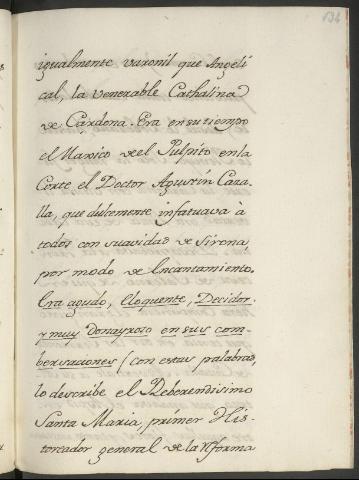 134
igualmente varonil que Angeli
cal, la venerable Cathalina
de Cardona. Era en su tiempo
el Marico de el Pulpito en la
Corte el Doctor Agustin Caza-
lla, que dulcemente infatuava à
todos con suavidad de Sirona,
por modo de Encantamiento.
Era agudo, Eloquente, Decidor,
y muy Donayroso en sus com-
bersaciones (con estas palabras
lo describe el Reberendisimo
Santa Maria, primer His-
toreador general de la Reforma